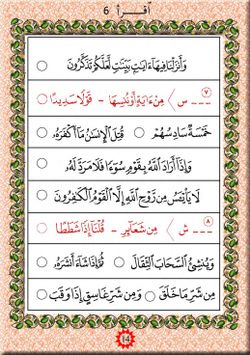 اقـــرأ 6
وَأَنزَلْنَا فِيهَا ءَايَٰتٍۭ بَيِّنَٰتٍ لَّعَلَّكُمْ تَذَكَّرُونَ
٧ ـ ـ ـ س ⟩ مِنْ ءَايَةٍ أَوْ نُنسِهَا - قَوْلًا سَدِيدًا
خَمْسَةٌ سَادِسُهُمْ ○ قُتِلَ ٱلْإِنسَٰنُ مَآ أَكْفَرَهُۥ
وَإِذَآ أَرَادَ ٱللَّهُ بِقَوْمٍ سُوٓءًا فَلَا مَرَدَّ لَهُۥ
لَا يَا۟يْـَٔسُ مِن رَّوْحِ ٱللَّهِ إِلَّا ٱلْقَوْمُ ٱلْكَٰفِرُونَ
٨ ـ ـ ـ ش ⟩ مِن شَعَآئِرِ - قُلْنَآ إِذًا شَطَطًا
وَيُنشِئُ ٱلسَّحَابَ ٱلثِّقَالَ ○ ثُمَّ إِذَا شَآءَ أَنشَرَهُۥ
مِن شَرِّ مَا خَلَقَ ○ وَمِن شَرِّ غَاسِقٍ إِذَا وَقَبَ
14